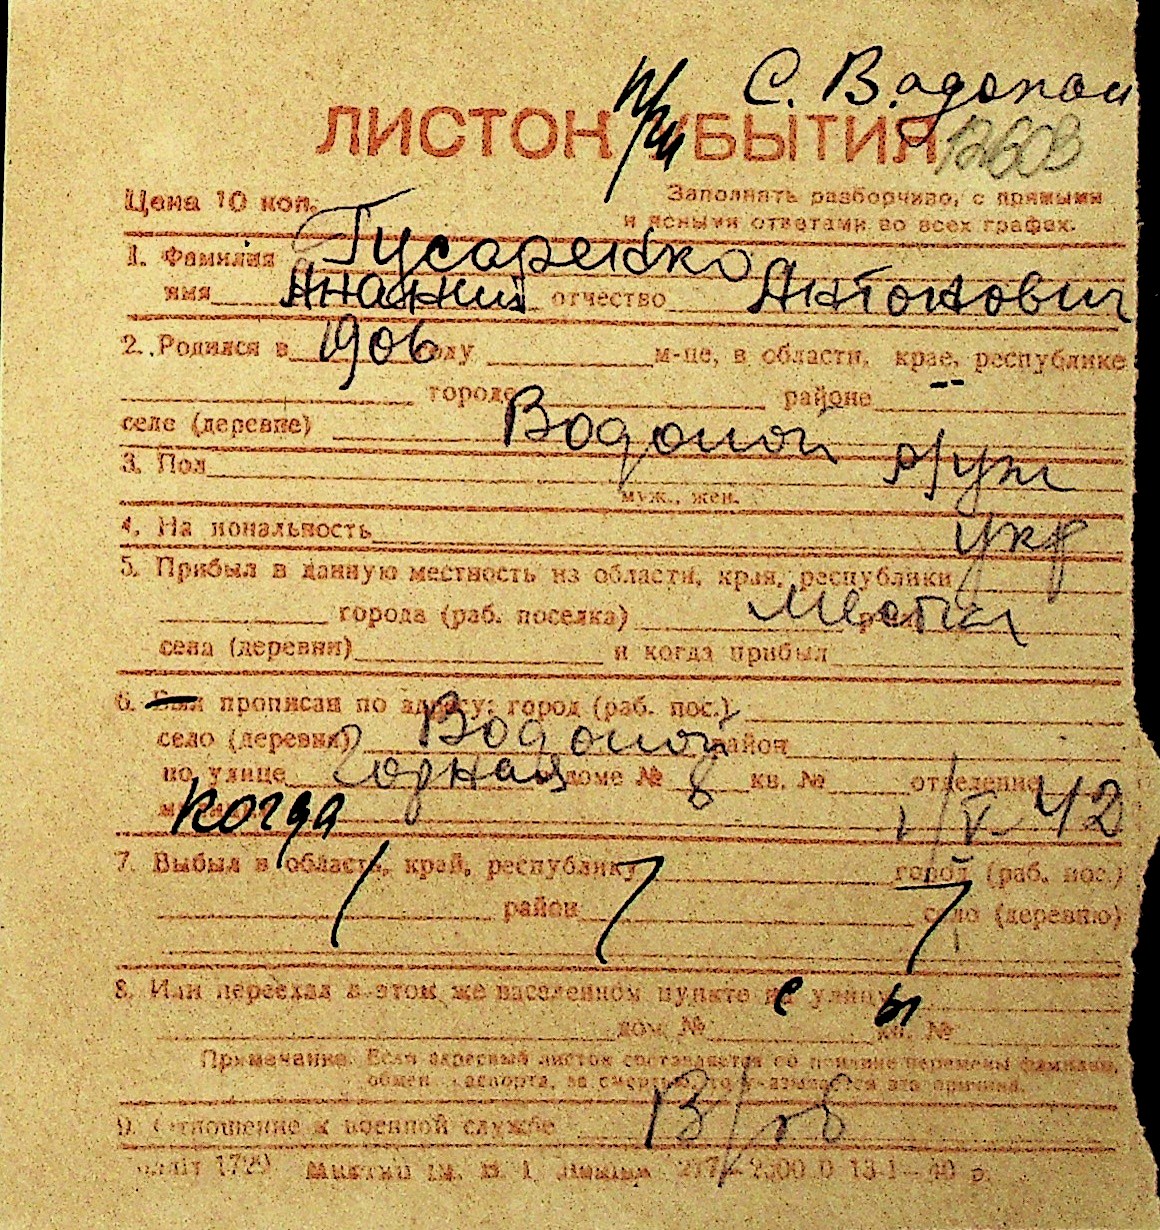 С. Водопой
ЛИСТОК при УБЫТИЯ 12603
Цена 10 коп. Заполнять разборчиво, с прямыми
и ясными ответами во всех графах.
1. Фамилия Гусаренко
имя Ананий отчество Антонович
2. Родился в 1906 году м-це, в области, крае, республике
городе районе --
селе (деревне) Водопой
3. Пол муж
муж., жен.
4. На иональность укр
5. Прибыл в данную местность из области, края, республики
города (раб. поселка) местн
села (деревни) и когда прибыл
6. Был прописан по адресу: город (раб. пос.)
село (деревня) Водопой район
по улице Горная доме № 8 кв. № отделение
когда 1/V-42
7. Выбыл в область, край, республику город (раб. пос.)
район село (деревню)
8. Или переехал в этом же населенном пункте на улицу
дом № кв. №
Примечание. Если адресный листок составляется по причине перемены фамилии,
обмен паспорта, за смертью, то указывается эта причина.
9. Отношение к военной службе В/об